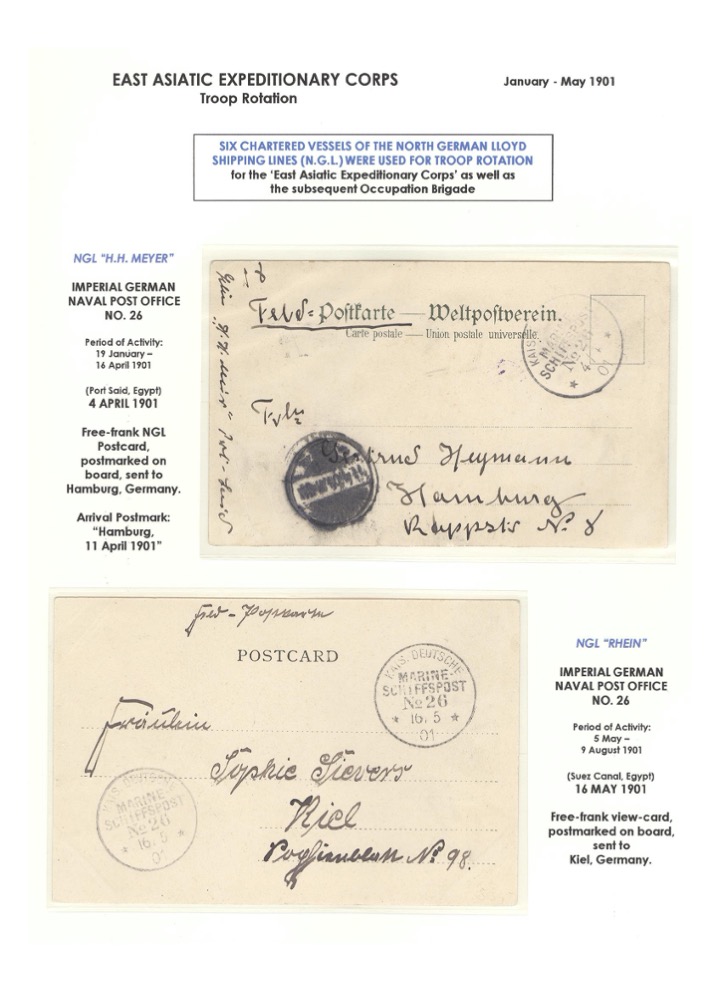 EAST ASIATIC EXPEDITIONARY CORPS
January - May 1901
Troop Rotation
SIX CHARTERED VESSELS OF THE NORTH GERMAN LLOYD
SHIPPING LINES (N.G.L.) WERE USED FOR TROOP ROTATION
for the 'East Asiatic Expeditionary Corps' as well as
the subsequent Occupation Brigade
NGL "H.H. MEYER"
IMPERIAL GERMAN
NAVAL POST OFFICE
NO. 26
Period of Activity:
19 January –
16 April 1901
(Port Said, Egypt)
4 APRIL 1901
Free-frank NGL
Postcard,
postmarked on
board, sent to
Hamburg, Germany.
Arrival Postmark:
"Hamburg,
11 April 1901"
Feld=Postkarte — Weltpostverein.
Carte postale — Union postale universelle.
KAIS.
MARINE-
SCHIFFSPOST
No 26
Gertrud Heymann
Hamburg
No. 8
Feld-Postkarte
POSTCARD
KAIS. DEUTSCHE
MARINE-
SCHIFFSPOST
No 26
* 16. 5 *
01
Fräulein
Sophie Sievers
Kiel
No. 98.
MARINE-
SCHIFFSPOST
No 26
* 16. 5
01
NGL "RHEIN"
IMPERIAL GERMAN
NAVAL POST OFFICE
NO. 26
Period of Activity:
5 May –
9 August 1901
(Suez Canal, Egypt)
16 MAY 1901
Free-frank view-card,
postmarked on board,
sent to
Kiel, Germany.